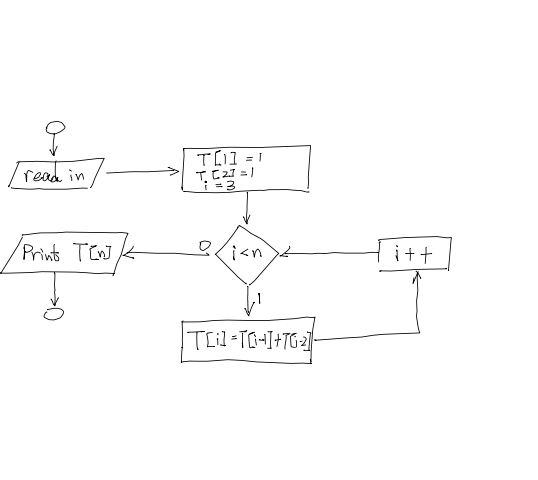 read in
T[1] = 1
T[2] = 1
i = 3
0
Prints T[n]
i < n
i++
1
T[i] = T[i-1] + T[i-2]